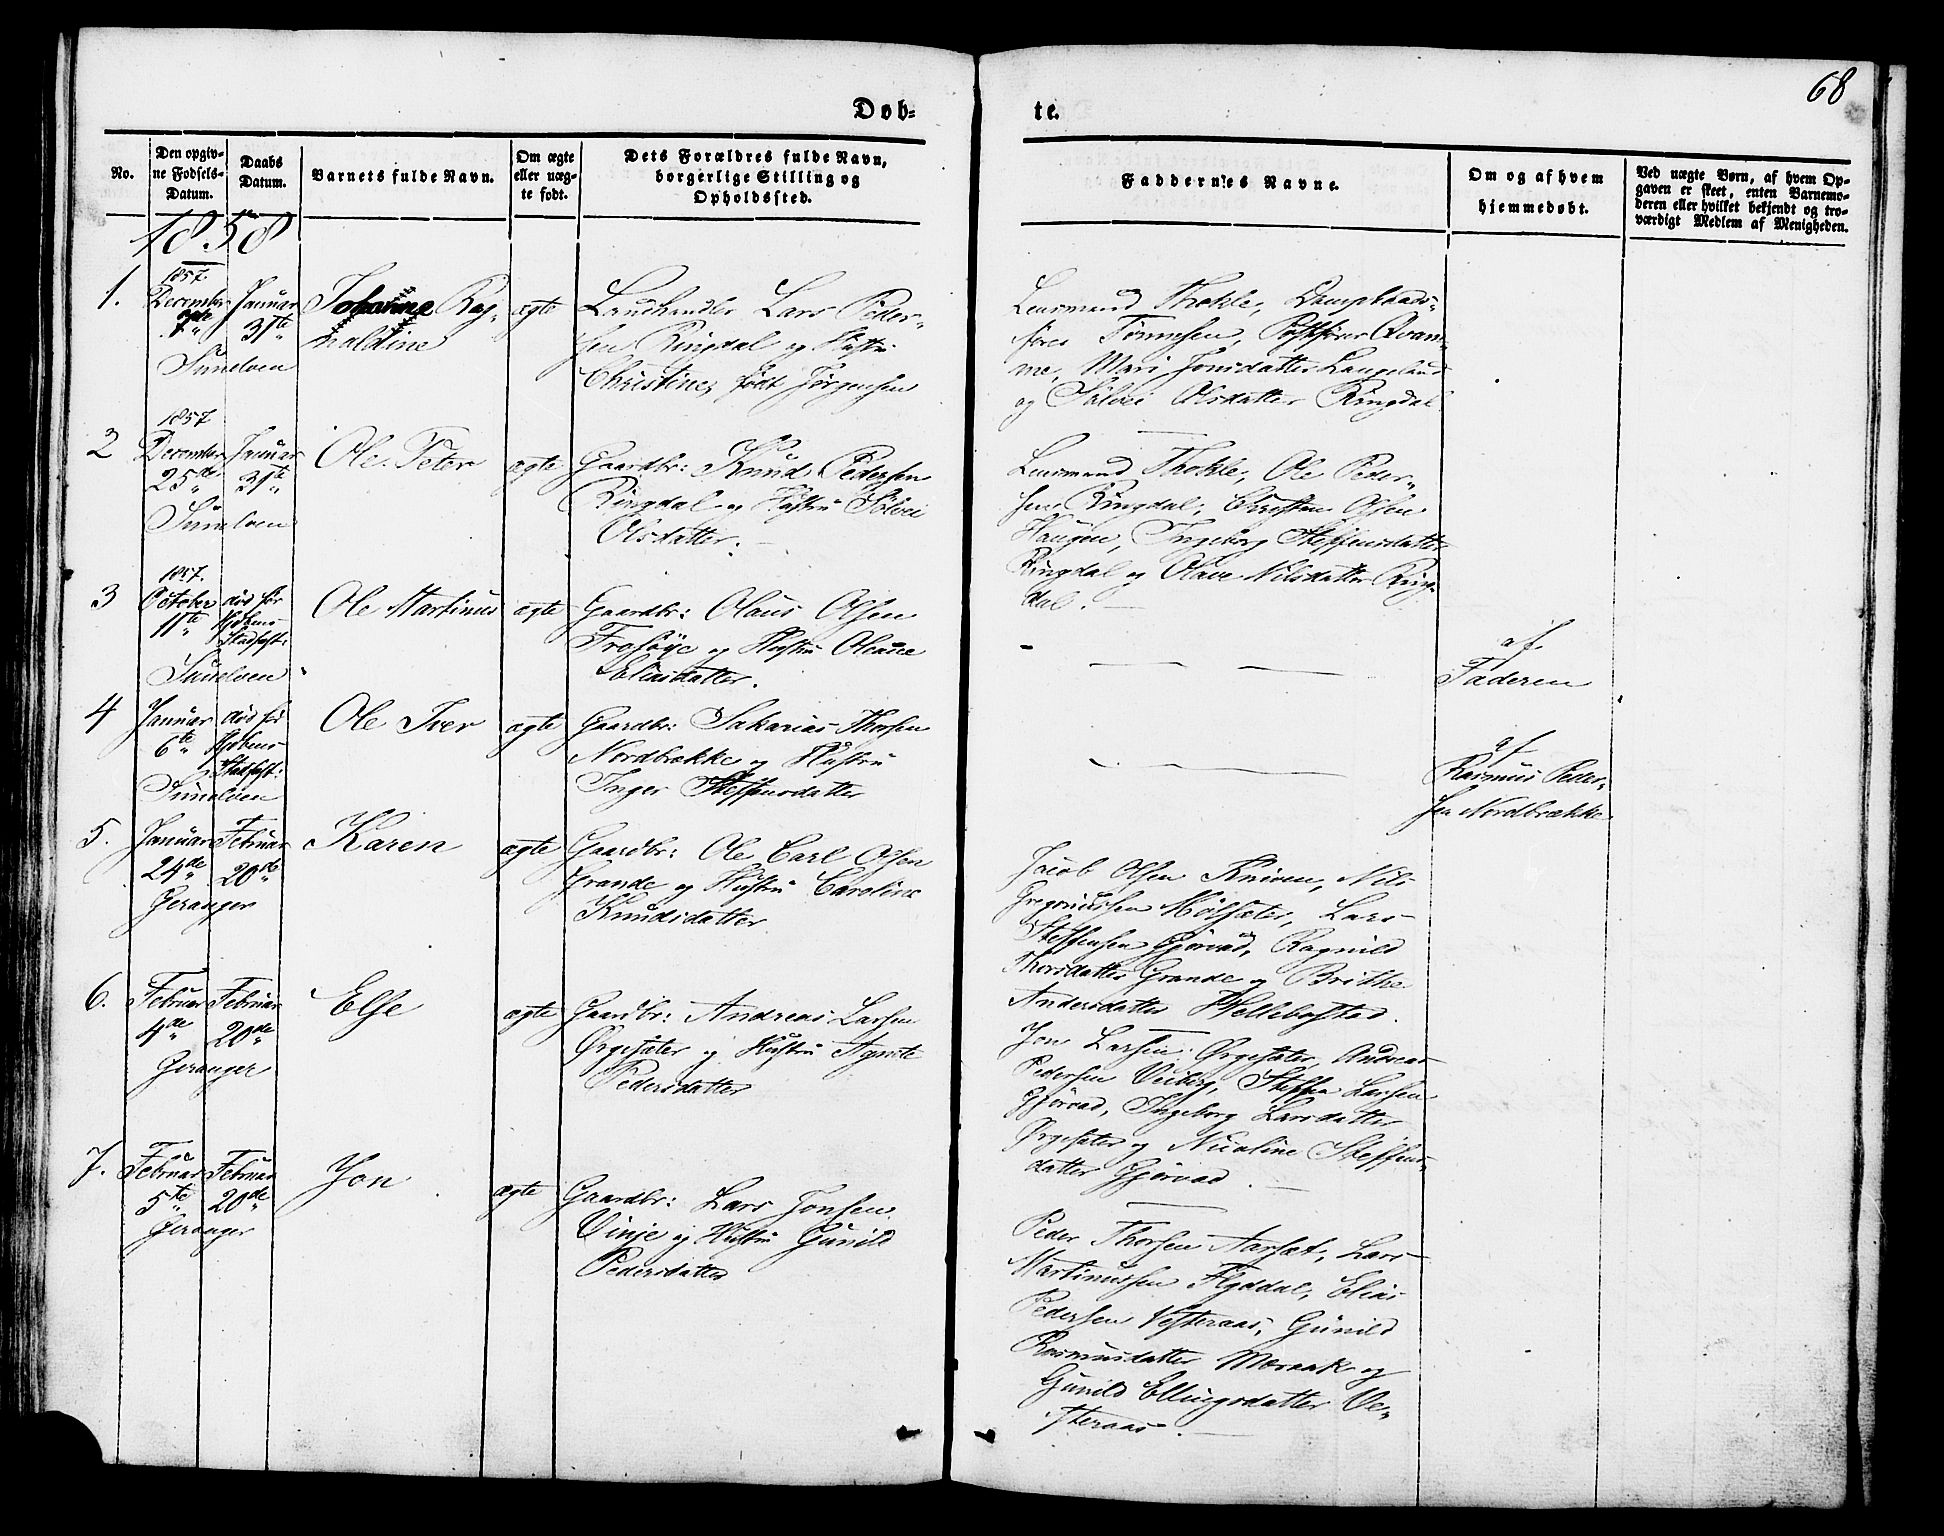 68
Døb=
te.
No.
Den opgiv-
ne Fødsels-
Datum.
Daabs
Datum.
Barnets fulde Navn.
Om ægte
eller uæg-
te født.
Dets Forældres fulde Navn,
borgerlige Stilling og
Opholdssted.
Faddernes Navne.
Om og af hvem
hjemmedøbt.
Ved uægte Børn, af hvem Op-
gaven er skeet, enten Barnemo-
deren eller hvilket bekjendt og tro-
værdigt Medlem af Menigheden.
1858
1.
1857.
December
7de
Sunelven
Januar
31te
Johanne Rag-
naldine
ægte
Landhandler Lars Peder-
sen Ringdal og Hustru
Christine, født Jørgensen
Lensmand Thokle, Dampbaads-
fører Tønnesen, Postfører Qvam-
me, Mari Jonsdatter Langelund
og Sølvei Olsdatter Ringdal
2
1857
December
25de
Sunelven
Januar
31te
Ole Peter
ægte
Gaardbr: Knud Pedersen
Ringdal og Hustru Sølvei
Olsdatter.
Lensmand Thokle, Ole Peder-
sen Ringdal, Christen Olsen
Haugen, Ingeborg Steffensdatter
Ringdal og Olave Nilsdatter Ring-
dal.
3
1857.
October
11te
Sunelven
død før
Stadfest:
Ole Martinus
ægte
Gaardbr: Olaus Olsen
Frosøye og Hustru Oleane
Eliasdatter.
af
Faderen
4
Januar
6te
Sunelven
død før
Stadfest:
Ole Iver
ægte
Gaardbr: Sakarias Thorsen
Nordbrække og Hustru
Inger Steffensdatter
af
Rasmus Peder-
sen Nordbrække
5.
Januar
24de
Geranger
Februar
20de
Karen
ægte
Gaardbr: Ole Carl Olsen
Grande og Hustru Caroline
Knudsdatter
Jacob Olsen Kniven, Nils
Gregoriussen Hølsæter, Lars
Steffensen Gjørvad, Ragnild
Thorsdatter Grande og Brithe
Andersdatter Hellebostad.
6.
Februar
4de
Geranger
Februar
20de
Else
ægte
Gaardbr: Andreas Larsen
Ørgesæter og Hustru Agnete
Pedersdatter
Jon Larsen Ørgesæter, Andreas
Pedersen Veiberg, Steffen Larsen
Gjørvad, Ingeborg Larsdatter
Ørgesæter og Nicoline Steffens-
datter Gjørvad.
7.
Februar
5te
Geranger
Februar
20de
Jon
ægte
Gaardbr: Lars Jonsen
Vinje og Hustru Gunild
Pedersdatter
Peder Thorsen Aarsæt, Lars
Martinussen Flyddal, Elias
Pedersen Vesteraas, Gunild
Rasmusdatter Meraak og
Gunild Ellingsdatter Ve-
steraas.